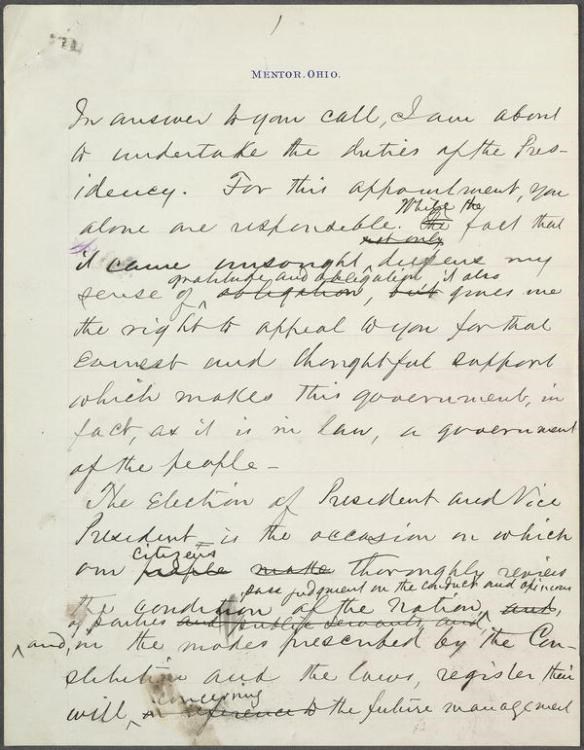 1
MENTOR, OHIO.
In answer to your call, I am about
to undertake the duties of the Pres-
idency. For this appointment, you
While the
alone are responsible. the fact that
not only
it came unsought, deepens my
gratitude and obligation, it also
sense of obligation, but gives me
the right to appeal to you for that
earnest and thoughtful support
which makes this government, in
fact, as it is in law, a government
of the people –
The Election of President and Vice
President is the occasion on which
citizens
our people make thoroughly review
, pass judgment on the conduct and opinions
the condition of the nation, and,
of parties and public servants, and
and, in the modes prescribed by the Con-
stitution and the laws, register their
concerning
will, in reference to the future management